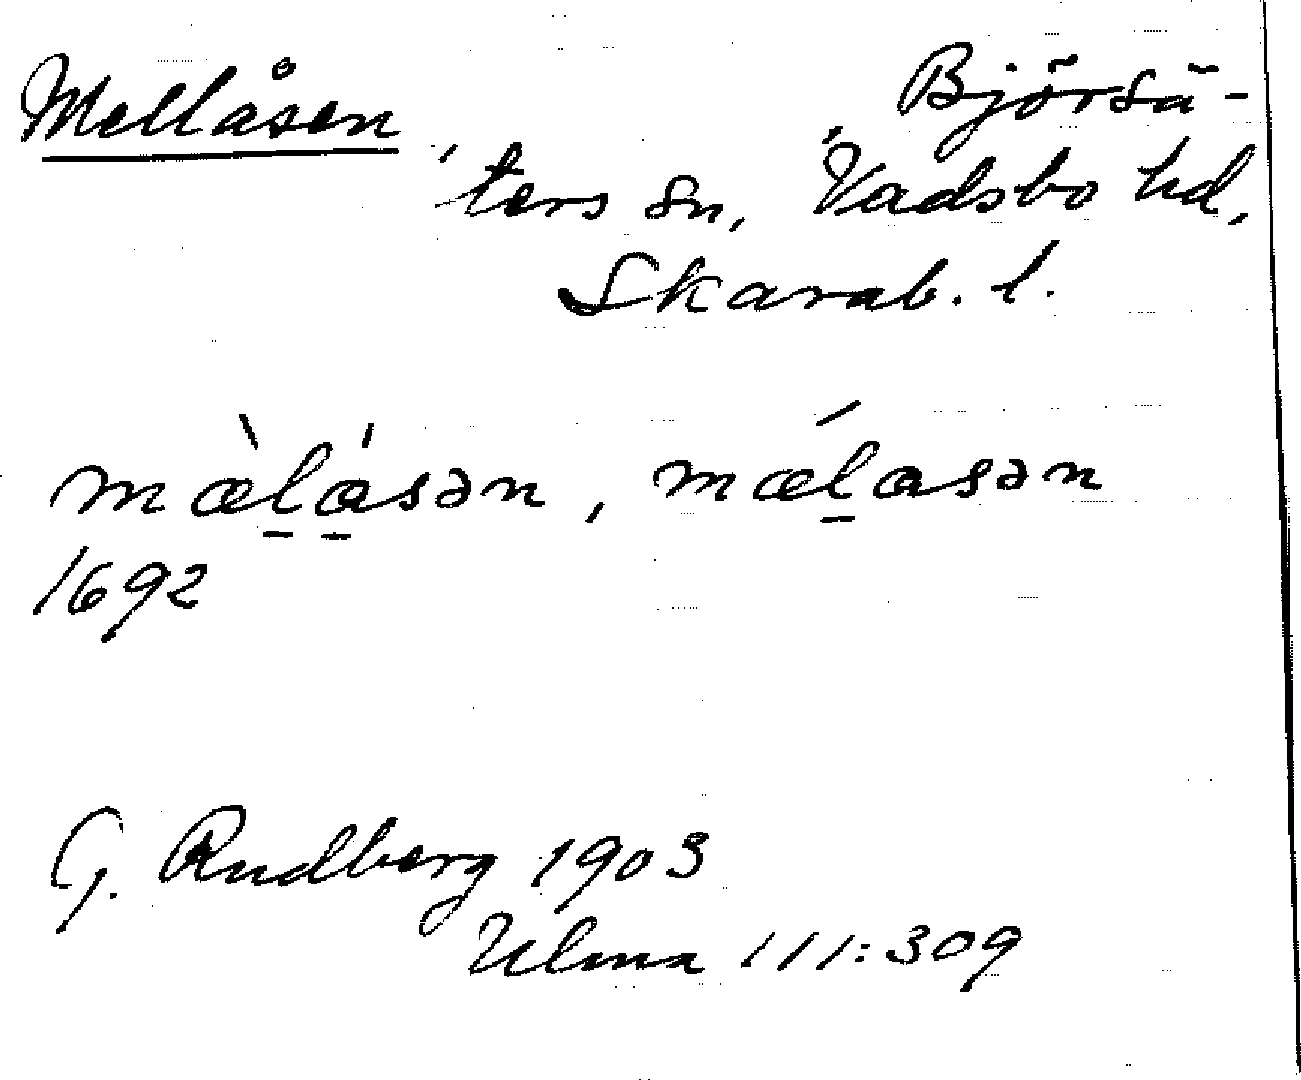 Mellåsen, Björsä-
ters sn, Vadsbo hd,
Skarab. l.
mæ̀l̠á̠sən, mǽl̠asən
1692
G. Rudberg 1903
Ulma 111:309